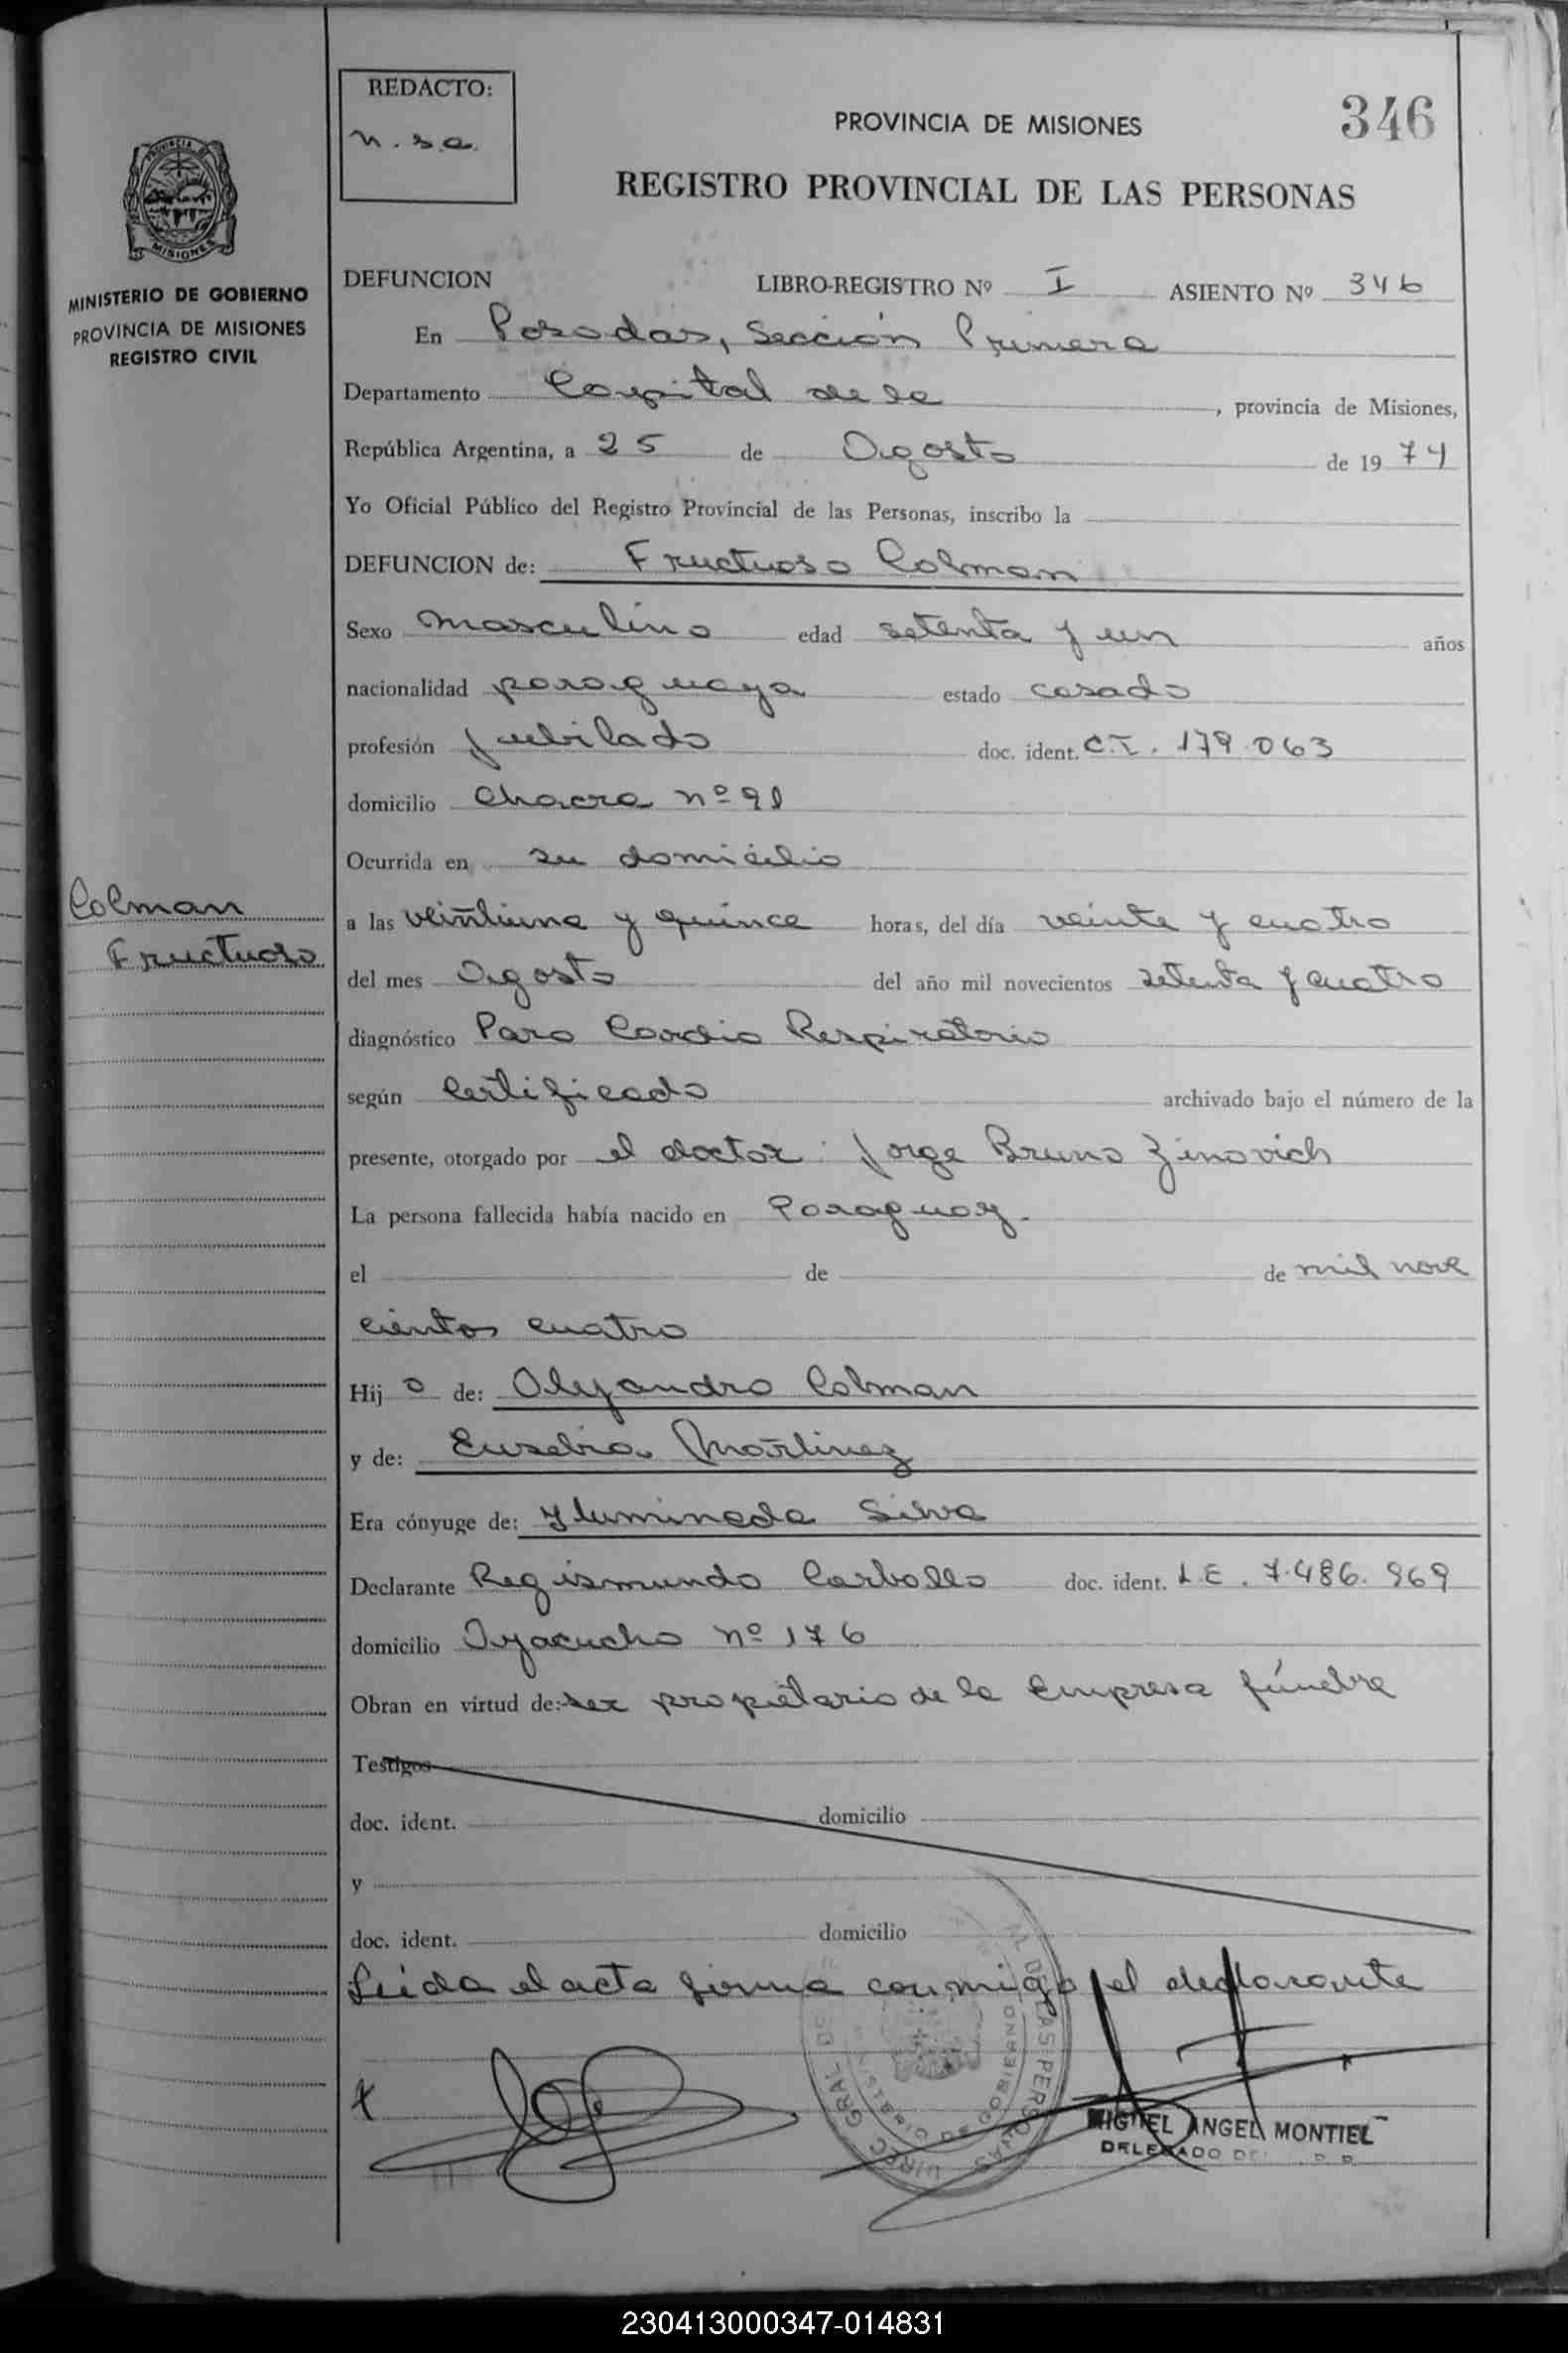 REDACTO:
n.s.a.
346
PROVINCIA DE MISIONES
REGISTRO PROVINCIAL DE LAS PERSONAS
PROVINCIA DE
MISIONES
MINISTERIO DE GOBIERNO
PROVINCIA DE MISIONES
REGISTRO CIVIL
DEFUNCION LIBRO-REGISTRO Nº I ASIENTO Nº 346
En Posadas, Sección Primera
Departamento Capital de la, provincia de Misiones,
República Argentina, a 25 de Agosto de 1974
Yo Oficial Público del Registro Provincial de las Personas, inscribo la
DEFUNCION de: Fructuoso Colman
Sexo masculino edad setenta y un años
nacionalidad paraguaya estado casado
profesión jubilado doc. ident. C.I. 179.063
domicilio Chacra nº 91
Ocurrida en su domicilio
Colman
Fructuoso
a las veintiuna y quince horas, del día veinte y cuatro
del mes Agosto del año mil novecientos setenta y cuatro
diagnóstico Paro Cardio Respiratorio
según Certificado archivado bajo el número de la
presente, otorgado por el doctor: Jorge Bruno Zinovich
La persona fallecida había nacido en Paraguay.
el de de mil nove
cientos cuatro
Hijo de: Alejandro Colman
y de: Eusebia Martinez
Era cónyuge de: Yluminada Silva
Declarante Regismundo Carballo doc. ident. L.E. 7.486.969
domicilio Ayacucho nº 176
Obran en virtud de: ser propietario de la Empresa fúnebre
Testigos
doc. ident. domicilio
y
doc. ident. domicilio
Leida el acta firma conmigo el declarante
MIGUEL ANGEL MONTIEL
DELEGADO
230413000347-014831